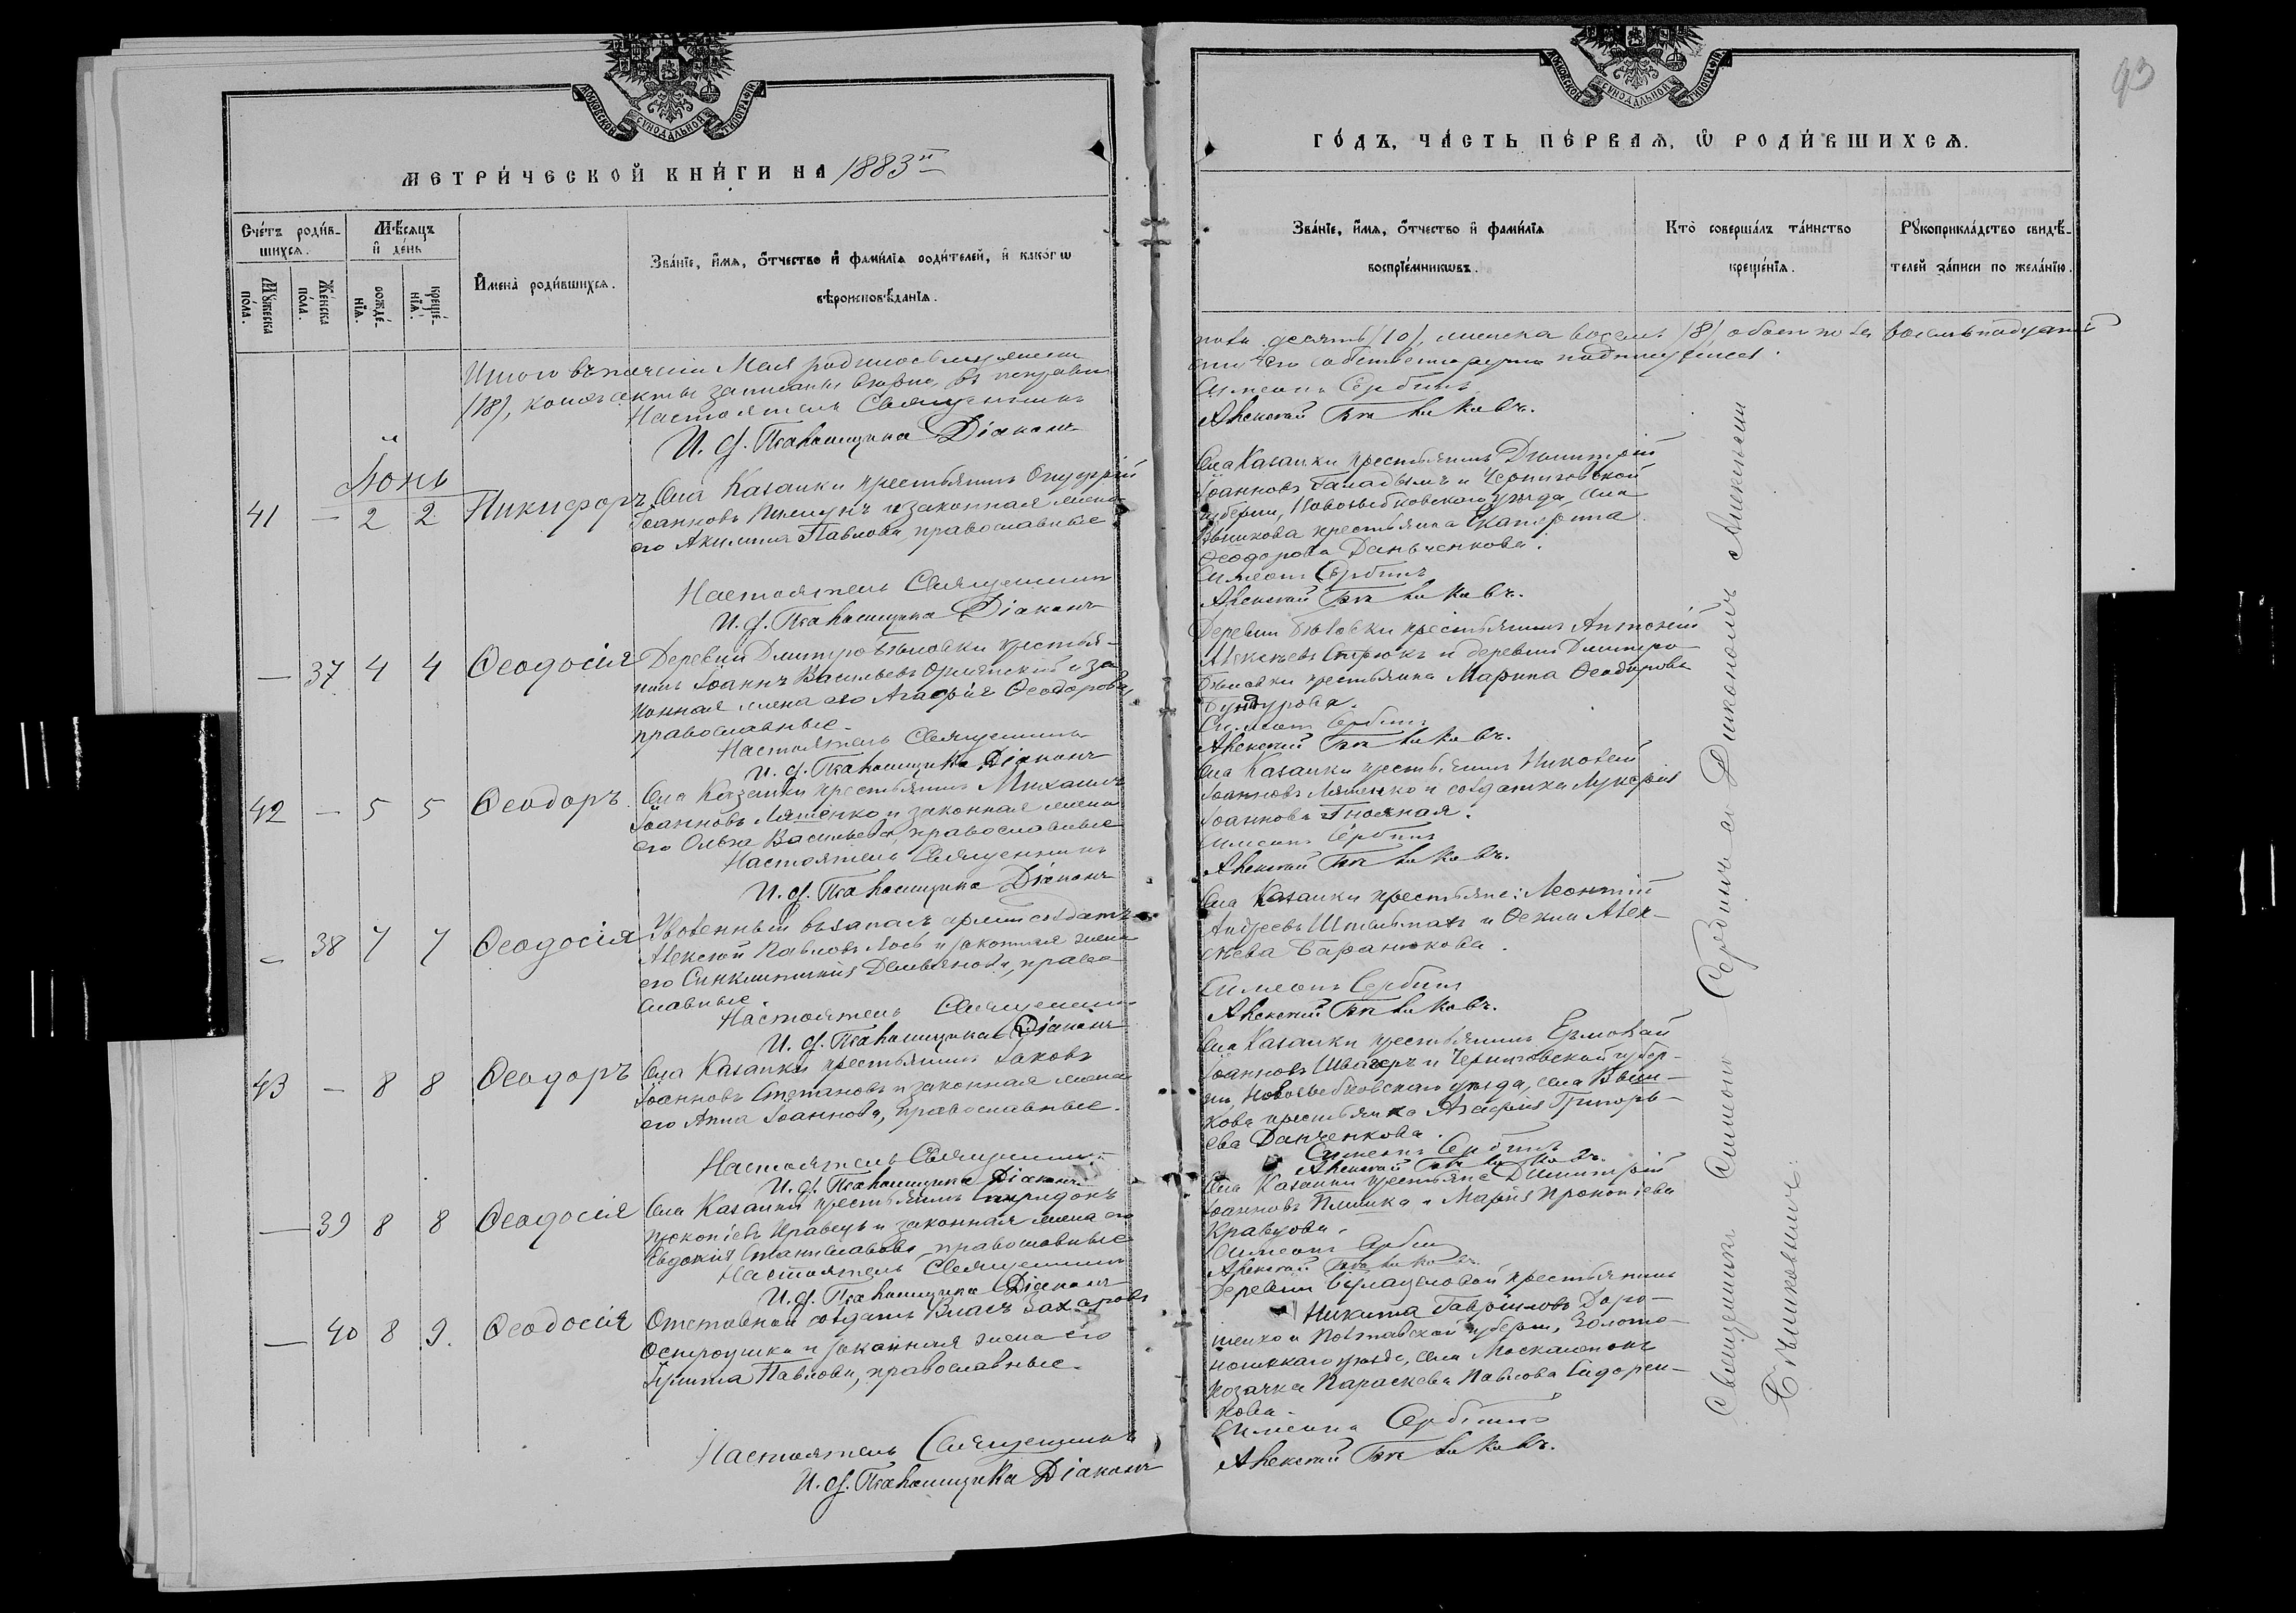 МЕТРИ́ЧЕСКОЙ КНИ́ГИ НА 1883й
Сче́тъ роди́в-
шихся.
Мꙋ́жеска
по́ла.
Же́нска
по́ла.
Мѣ́сяцъ
и҆ де́нь
рожде́-
нїѧ.
креще́-
нїѧ.
И҆мена̀ роди́вшихся.
Зва́нїе, и҆́мѧ, ѻ҆́тчество и҆ фами́лїѧ роди́телей, и҆ како́гѡ
вѣроисповѣ́данїѧ.
Итого въ теченіи Мая родилось мужеска
(18), коихъ акты записаны вѣрно, въ
Настоятель Священникъ
И. д. Псаломщика Діаконъ
Іюнь
41 — 2 2 Никифоръ
Села Казанки крестьянинъ Онуфрій
Іоанновъ и законная жена
его Акилина Павлова, православные
Настоятель Священникъ
И. д. Псаломщика Діаконъ
— 37 4 4 Ѳеодосія
Деревни Дмитро-Бѣловки крестья-
нинъ Іоаннъ Васильевъ и за-
конная жена его Агафія Ѳеодорова,
православные.
Настоятель Священникъ
И. д. Псаломщика Діаконъ
42 — 5 5 Ѳеодоръ
Села Казанки крестьянинъ Михаилъ
Іоанновъ Ляшенко и законная жена
его Ольга Васильева, православные
Настоятель Священникъ
И. д. Псаломщика Діаконъ
— 38 7 7 Ѳеодосія
Уволенный въ запасъ арміи солдатъ
Алексѣй Павловъ Лось и законная жена
его Синклитикія Демьянова, право-
славные
Настоятель Священникъ
И. д. Псаломщика Діаконъ
43 — 8 8 Ѳеодоръ
Села Казанки крестьянинъ Іаковъ
Іоанновъ Степановъ и законная жена
его Анна Іоаннова, православные.
Настоятель Священникъ
И. д. Псаломщика Діаконъ
— 39 8 8 Ѳеодосія
Села Казанки крестьянинъ Спиридонъ
Прокопіевъ Кравецъ и законная жена его
Евдокія Станиславова, православные
Настоятель Священникъ
И. д. Псаломщика Діаконъ
— 40 8 9. Ѳеодосія
Отставной солдатъ Власъ Захаровъ
Остроушка и законная жена его
Іулитта Павлова, православные.
Настоятель Священникъ
И. д. Псаломщика Діаконъ
93
ГО́ДЪ, ЧА́СТЬ ПЕ́РВАѦ, Ѡ҆ РОДИ́ВШИХСѦ.
Зва́нїе, и҆́мѧ, ѻ҆́тчество и҆ фами́лїѧ
воспрїе́мникѡвъ.
Кто̀ соверша́лъ та́инство
креще́нїѧ.
Рꙋкоприкла́дство свидѣ́-
телей за́писи по жела́нїю.
пола десять (10), женска восемь (8), обоего пола восемнадцать
собственноручно подписуемся.
Симеонъ Сербинъ
Алексѣй
Села Казанки крестьянинъ Димитрій
Іоанновъ и Черниговской
губерніи, Новозыбковскаго уѣзда, села
Вышкова крестьянка Екатерина
Ѳеодорова Данченкова.
Симеонъ Сербинъ
Алексѣй
Деревни крестьянинъ Антоній
Алексѣевъ Стрюкъ и деревни Дмитро-
Бѣловки крестьянка Марина Ѳеодорова
Бундурова.
Симеонъ Сербинъ
Алексѣй
Села Казанки крестьянинъ Николай
Іоанновъ Ляшенко и солдатка Лукерія
Іоаннова Гноевая.
Симеонъ Сербинъ
Алексѣй
Села Казанки крестьяне: Леонтій
Андреевъ и Ѳекла Алек-
сѣева Баранюкова.
Симеонъ Сербинъ
Алексѣй
Села Казанки крестьянинъ Ермолай
Іоанновъ Швагеръ и Черниговской губер-
ніи, Новозыбковскаго уѣзда, села Выш-
кова крестьянка Агафія Григорь-
ева Данченкова.
Симеонъ Сербинъ
Алексѣй
Села Казанки крестьяне Димитрій
Іоанновъ и Марія Прокопіева
Кравцова.
Симеонъ Сербинъ
Алексѣй
Деревни Булацеловой крестьянинъ
Никита Гавріиловъ Доро-
шенко и Полтавской губерніи, Золото-
ношскаго уѣзда, села Москаленокъ
козачка Параскева Павлова Сидорен-
кова.
Симеонъ Сербинъ
Алексѣй
Священникъ Симеонъ Сербинъ съ Діакономъ Алексѣемъ